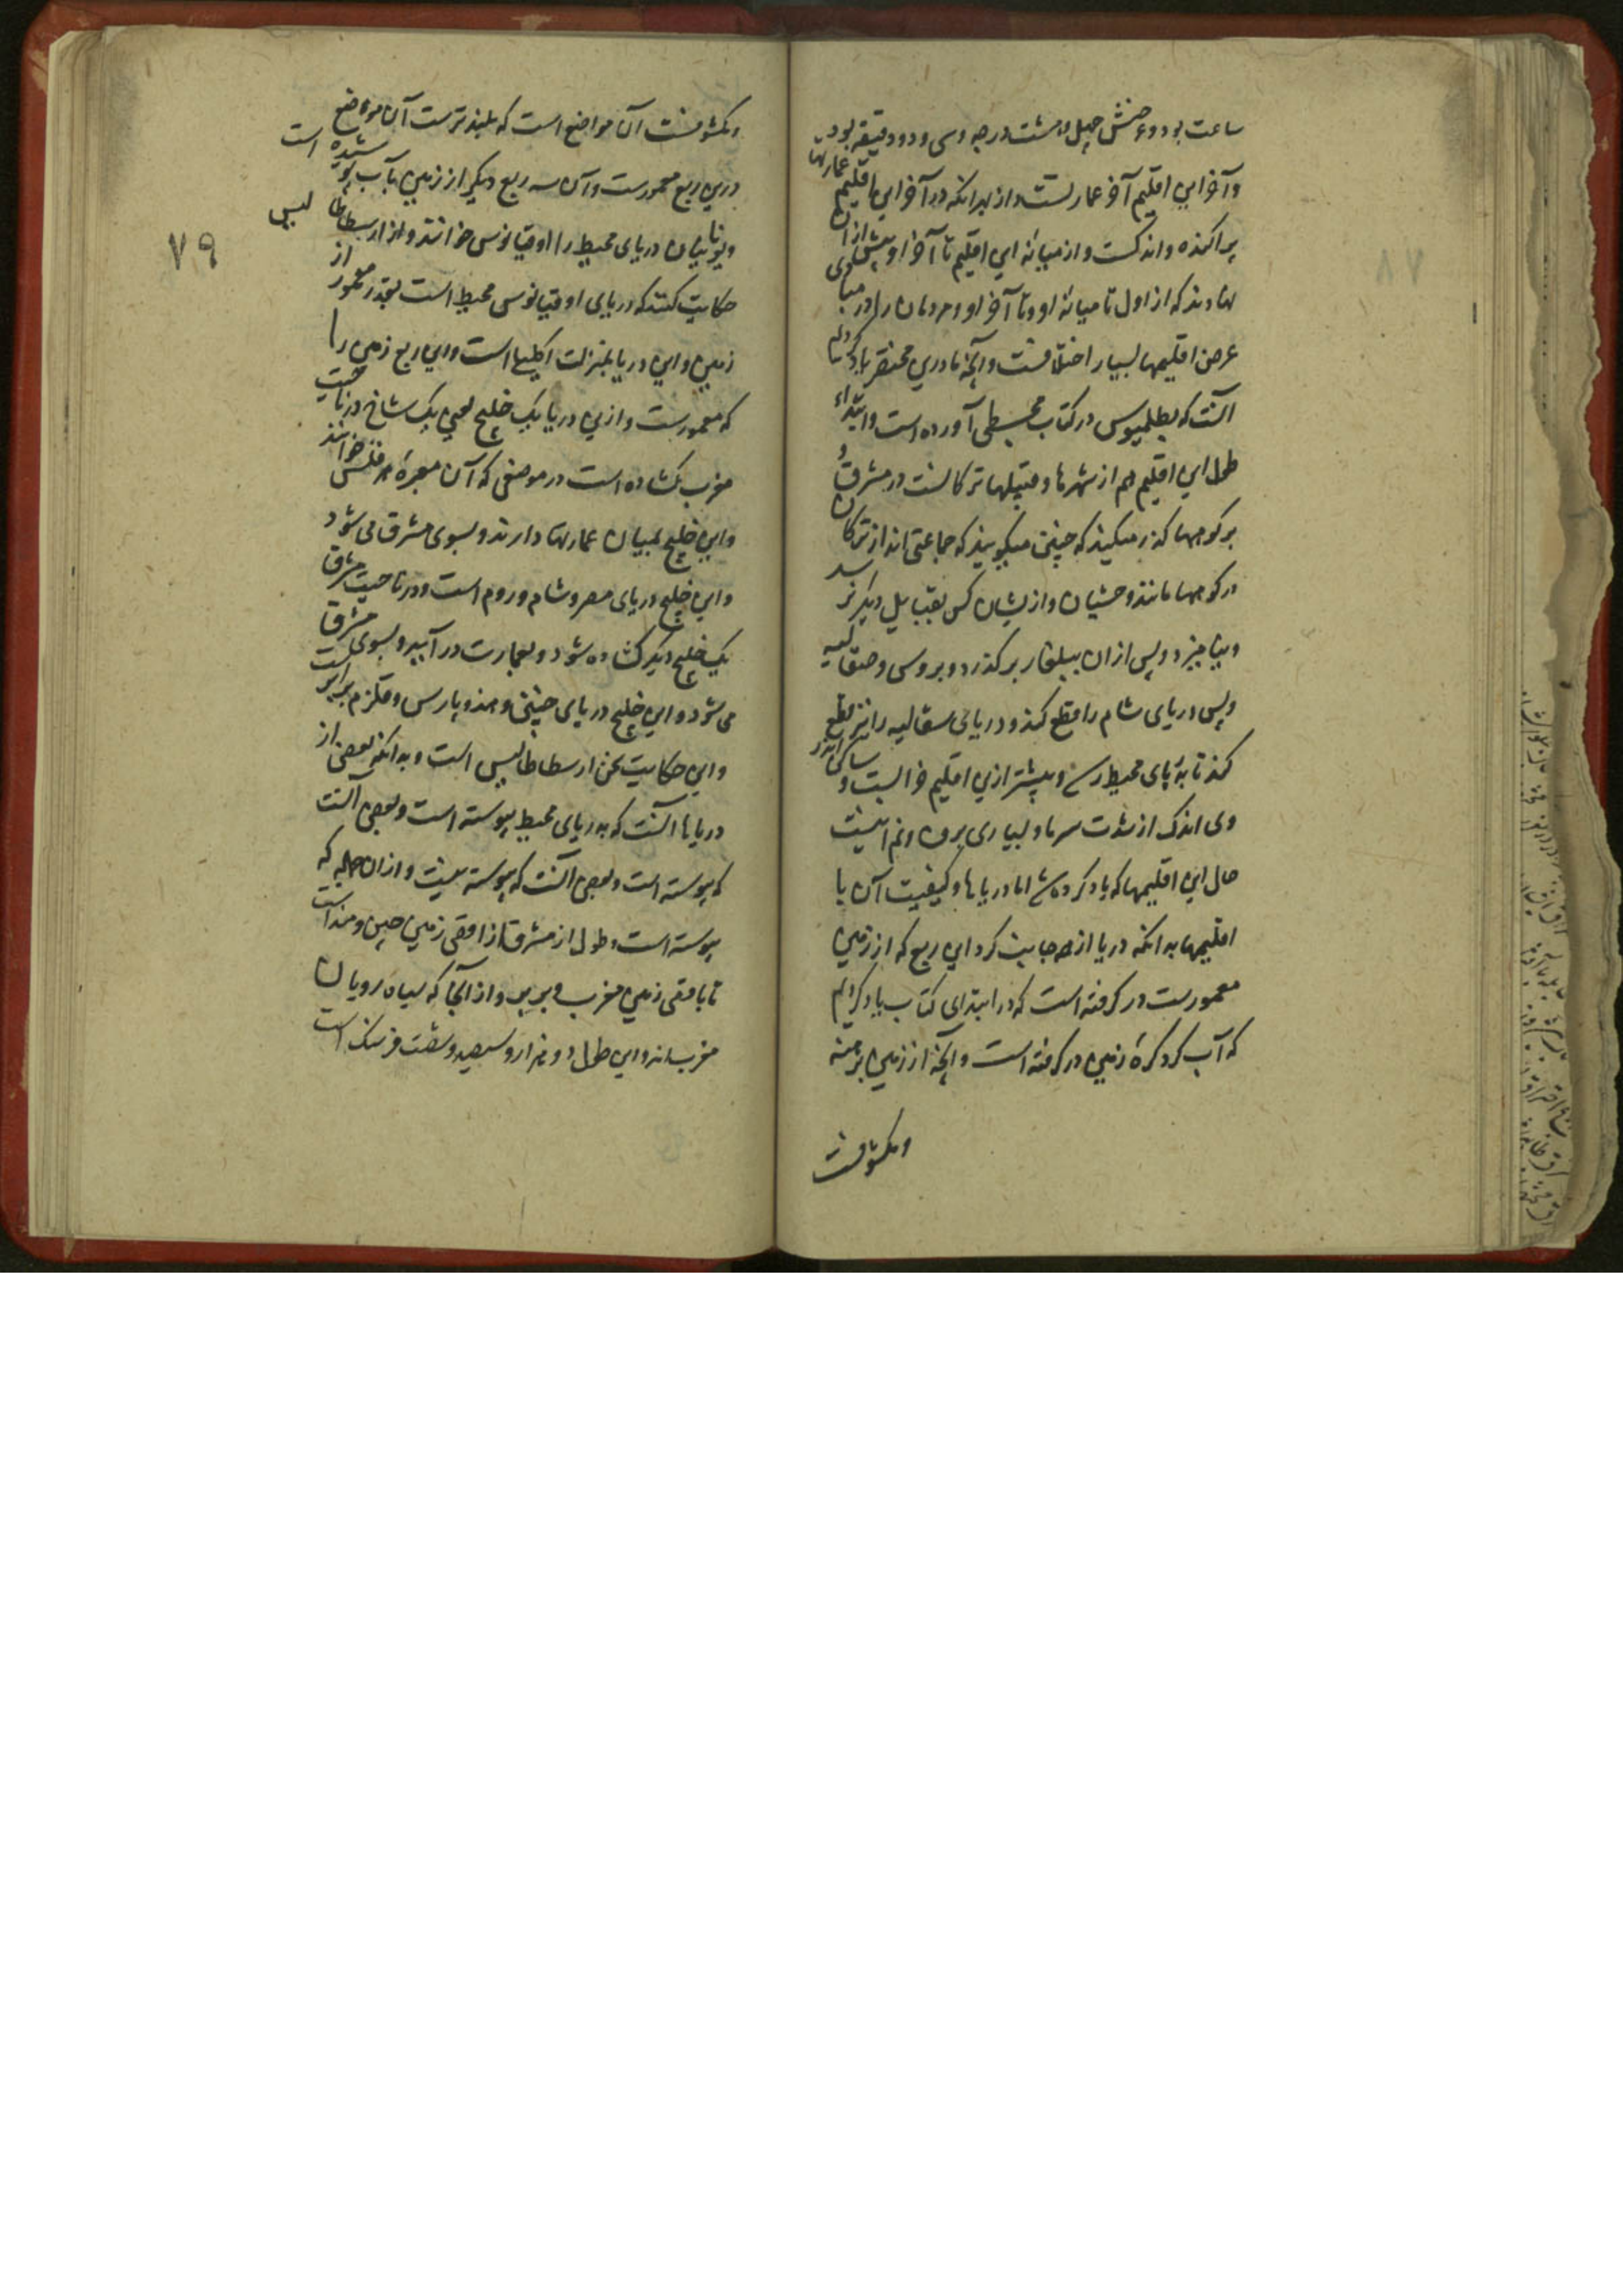 ساعت بود و عرضش چهل و هشت درجه و سی و دو دقیقه بود
و آخر این اقلیم آخر عمارتست و از بهر آنکه در آخر این اقلیم عمارتها
پراکنده و اندکست و از میانه این اقلیم تا آخر او پیش از آن
نهادند که از اول تا میانه او و تا آخر او و مردمان را در
عرض اقلیمها بسیار اختلافست و آنچه ما درین مختصر یاد کردیم
آنست که بطلمیوس در کتاب مجسطی آورده است و ابتداء
طول این اقلیم هم از شهرها و قبیلها ترکانست در مشرق و
بر کوهها گذر میکند که چنین میگویند که جماعتی اند از ترکان
در کوهها مانند وحشیان و ازیشان کس بقبایل دیگر نرسد
و نیامیزد و پس از آن ببلغار برگذرد و بروس و صقالیه
و پس دریای شام را قطع کند و دریای سقالیه را نیز قطع
کند تا به پای محیط رسد و بیشتر ازین اقلیم خرابست و ساکن اندر
وی اندک از شدت سرما و بسیاری برف و نم اینست
حال این اقلیمها که یاد کرده شد اما دریاها و کیفیت آن با
اقلیمها بدانکه دریا از همه جانب گرد این ربع که از زمین
معمورست در گرفته است که در ابتدای کتاب یاد کردیم
که آب گرد کره زمین در گرفته است و آنچه از زمین برهنه
و مکشوفست
و مکشوفست آن مواضع است که بلندترست آن مواضع
درین ربع معمورست و آن سه ربع دیگر از زمین بآب پوشیده است
و یونانیان دریای محیط را اوقیانوس خوانند و از ارسطاطالیس
حکایت کنند که دریای اوقیانوس محیط است بقدر معمور از
زمین و این دریا بمنزلت اکلیل است و این ربع زمین را
که معمورست و ازین دریا یک خلیج یعنی یک شاخ در ناحیت
مغرب گشاده است در موضعی که آن معبره خوانند
و این خلیج بمیان عمارتها دارند و بسوی مشرق می شود
و این خلیج دریای مصر و شام و روم است و در ناحیت مشرق
یک خلیج دیگر گشاده شود و بعمارت در آید و بسوی مشرق
می شود و این خلیج دریای چین و هند و پارس و قلزم و بربر است
و این حکایت عن ارسطاطالیس است و بدانکه بعضی از
دریاها آنست که بدریای محیط پیوسته است و بعضی آنست
که پیوسته است و بعضی آنست که پیوسته نیست و از آن جمله که
پیوسته است و طول از مشرق از اقصی زمین چین و هند است
تا باقصی زمین مغرب و بربر و از آنجا که سیاه رویان
مغرب اند و این طول دو هزار و سیصد و شصت فرسنگ است
۷۹